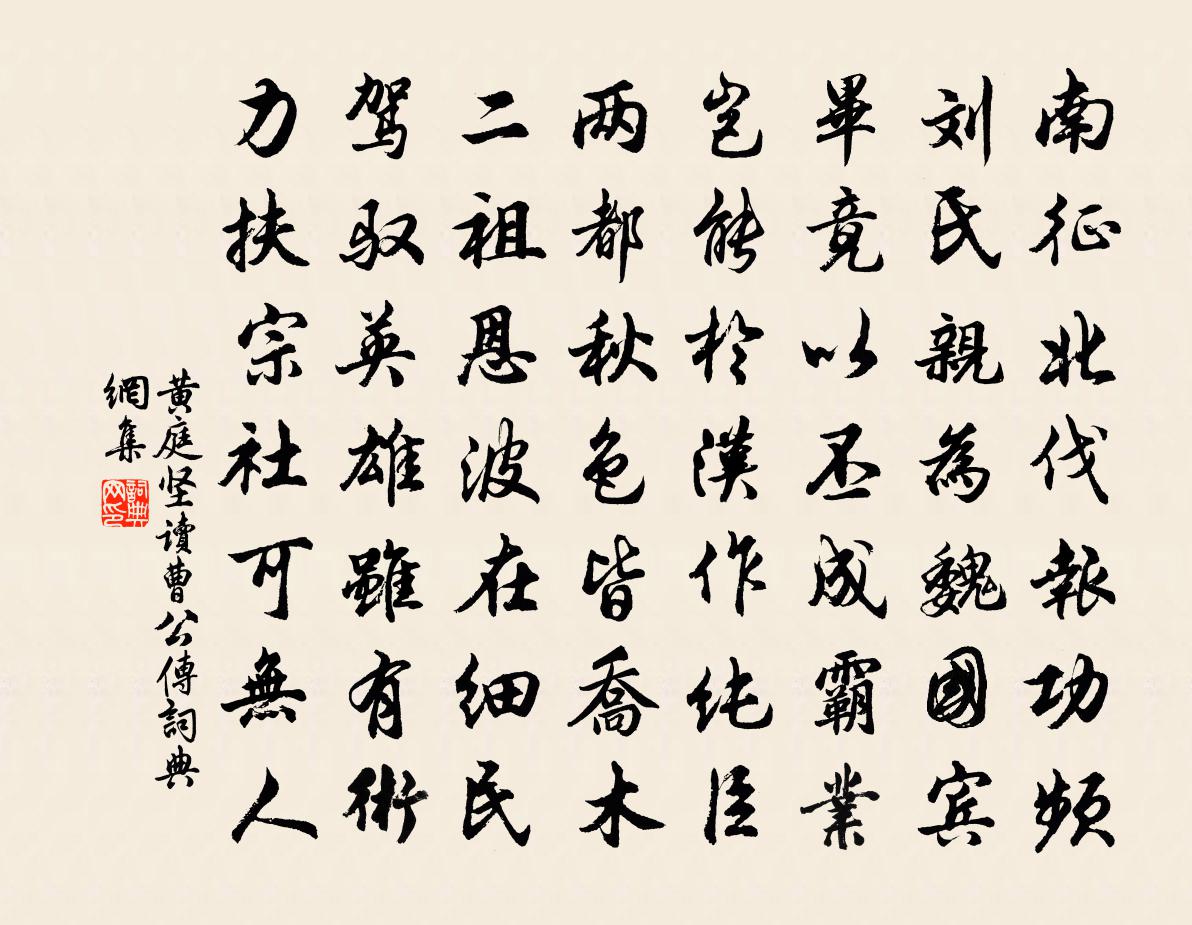 南征北伐報功頻
刘氏親為魏國宾
畢竟以丕成霸業
岂能於漢作纯臣
两都秋色皆喬木
二祖恩波在细民
驾驭英雄雖有術
力扶宗社可無人
黄庭坚讀曹公傳詞典
網集
詞典
网印